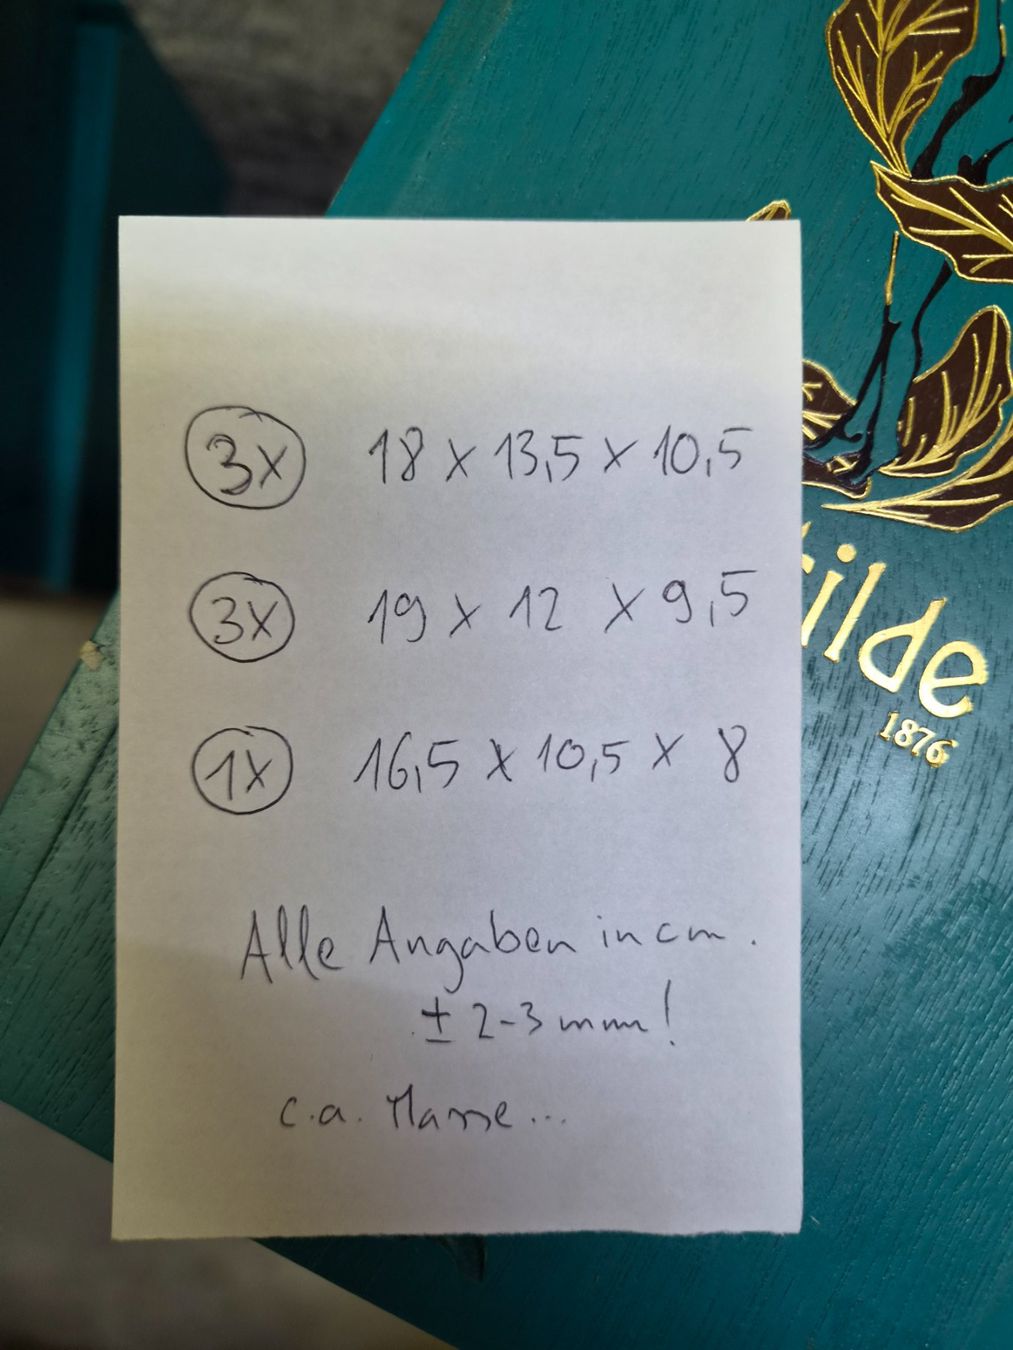 3x 18 x 13,5 x 10,5
3x 19 x 12 x 9,5
1x 16,5 x 10,5 x 8
Alle Angaben in cm.
± 2-3 mm!
c.a. Masse...
ilde
1876